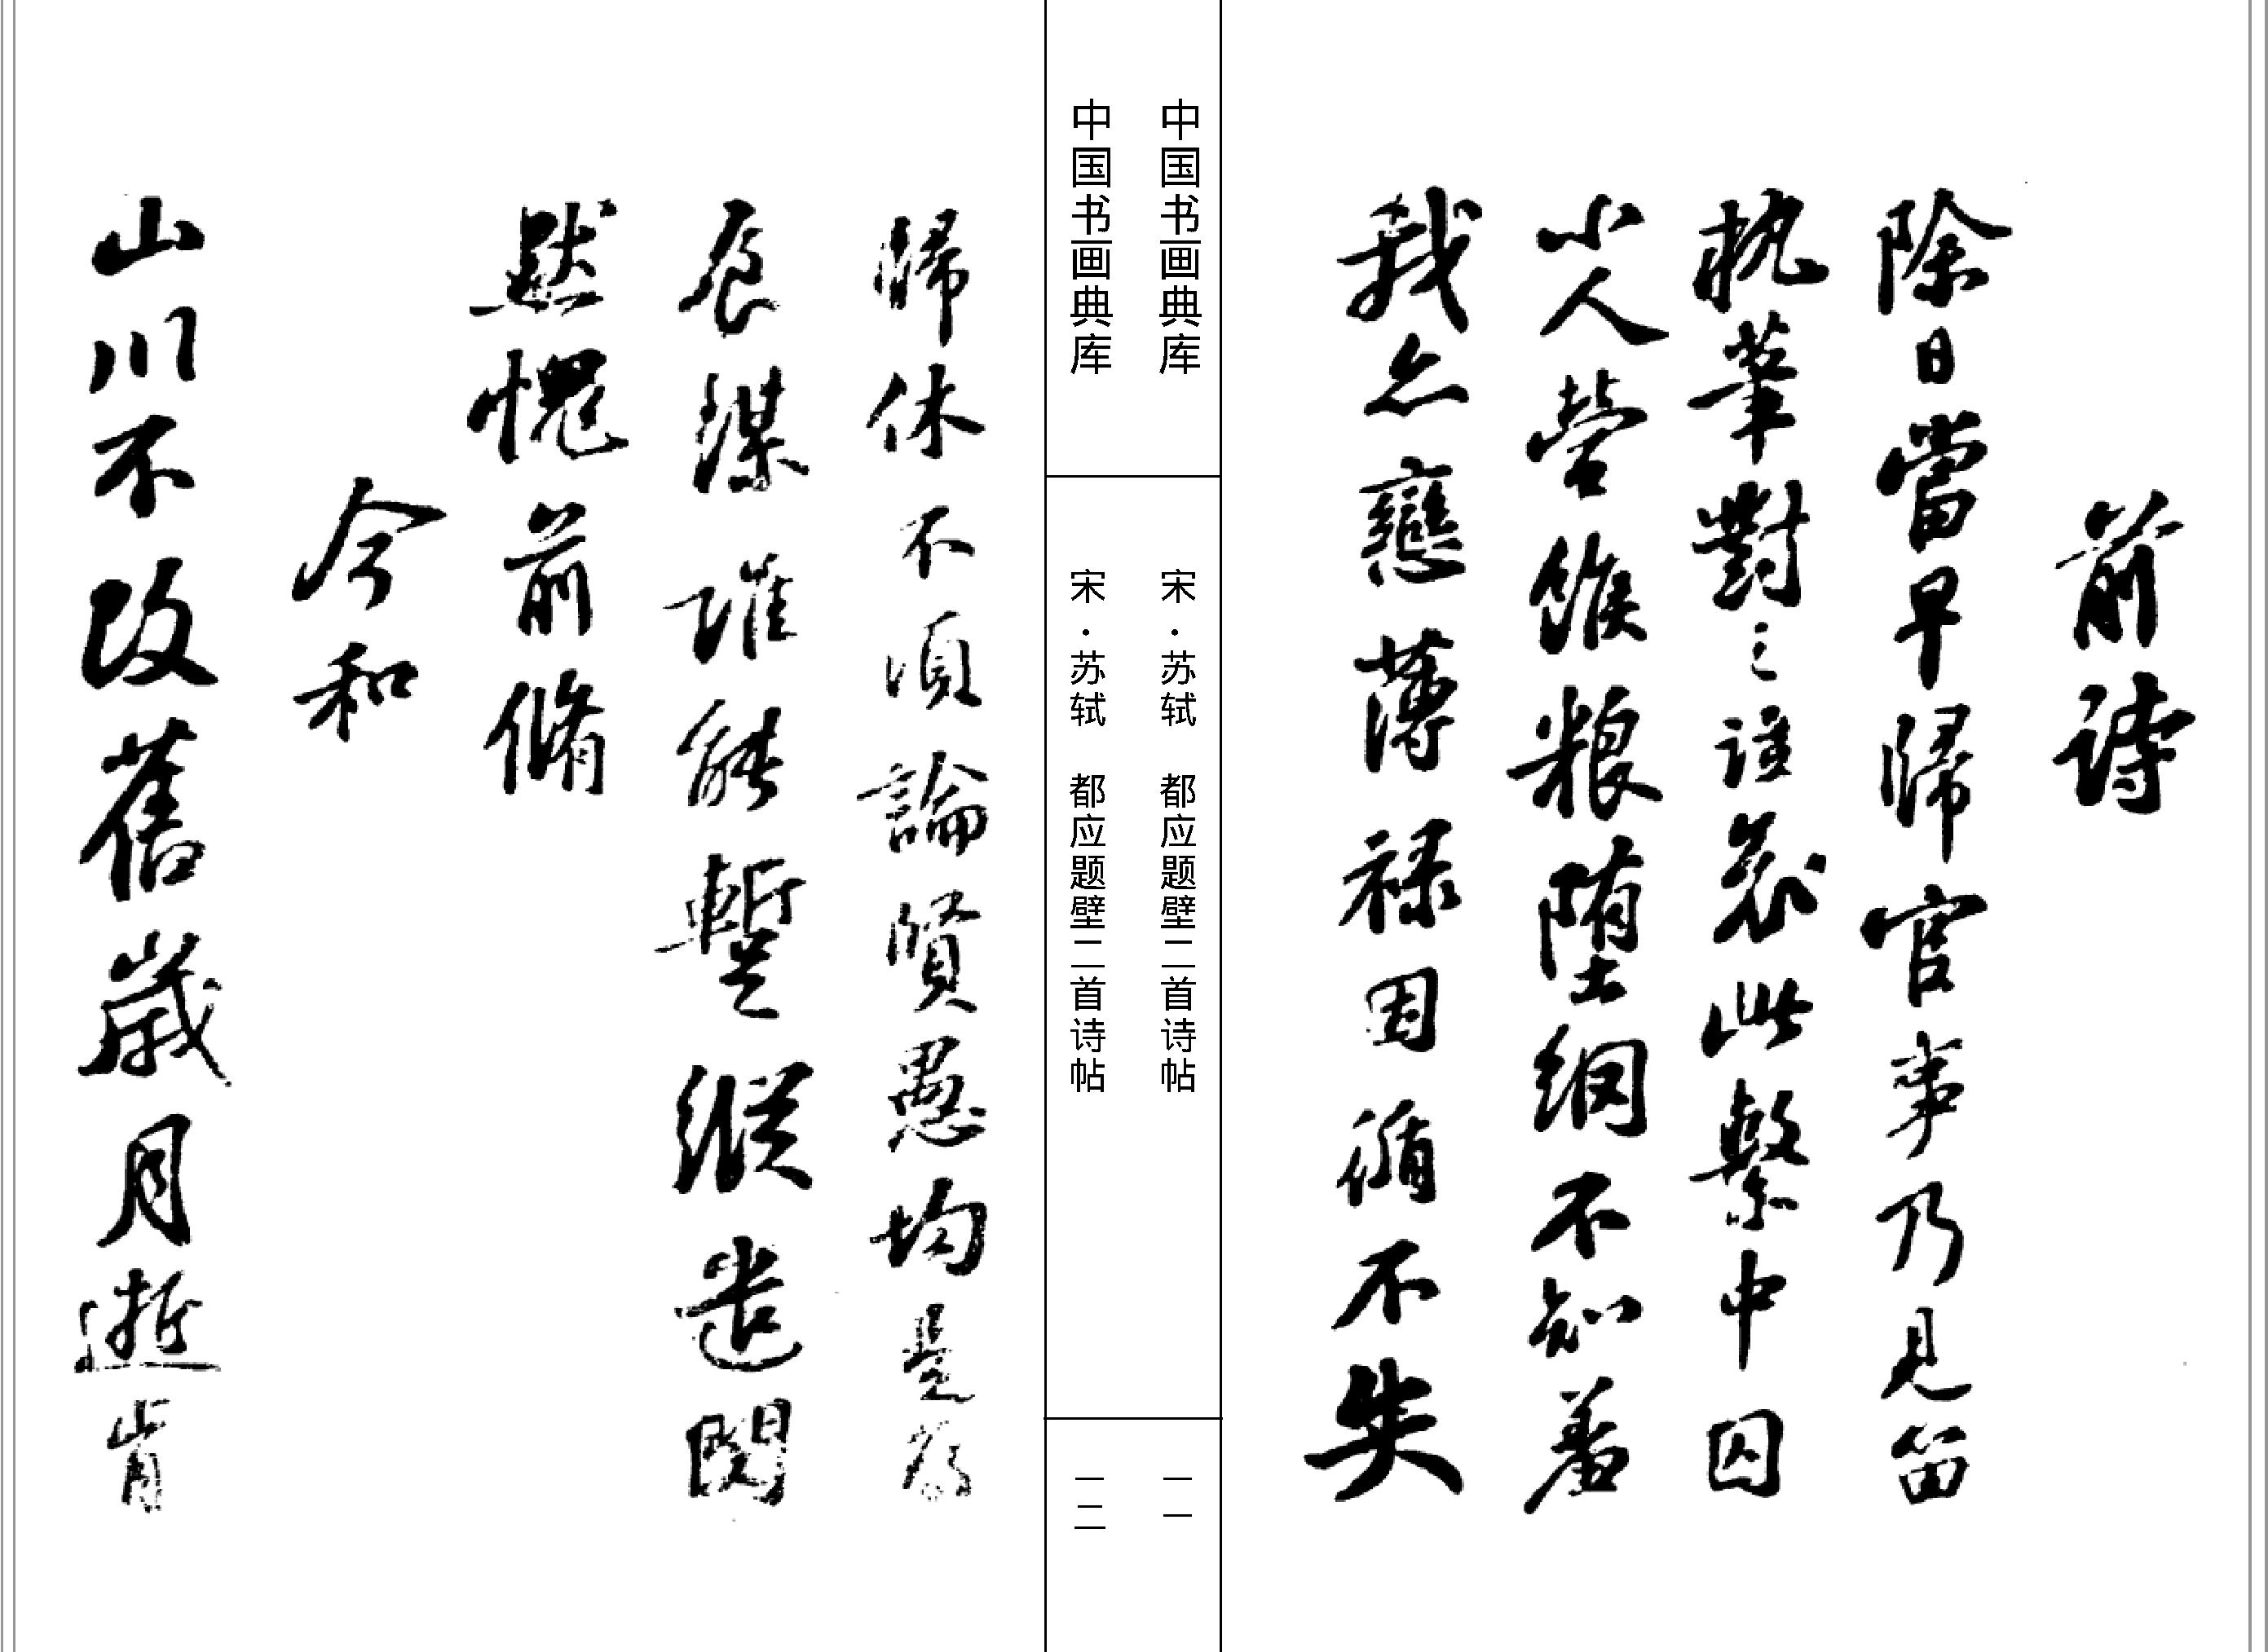 前詩
除日當早歸官事乃見留
執筆對之泣哀此繫中囚
小人營餱粮墮網不知羞
我亦戀薄禄因循不失
中国书画典库
宋·苏轼 都应题壁二首诗帖
一一
中国书画典库
宋·苏轼 都应题壁二首诗帖
一二
歸休不須論賢愚均是為
食謀誰能蹔縱遣閔
默愧前脩
今和
山川不改舊歲月逝肯